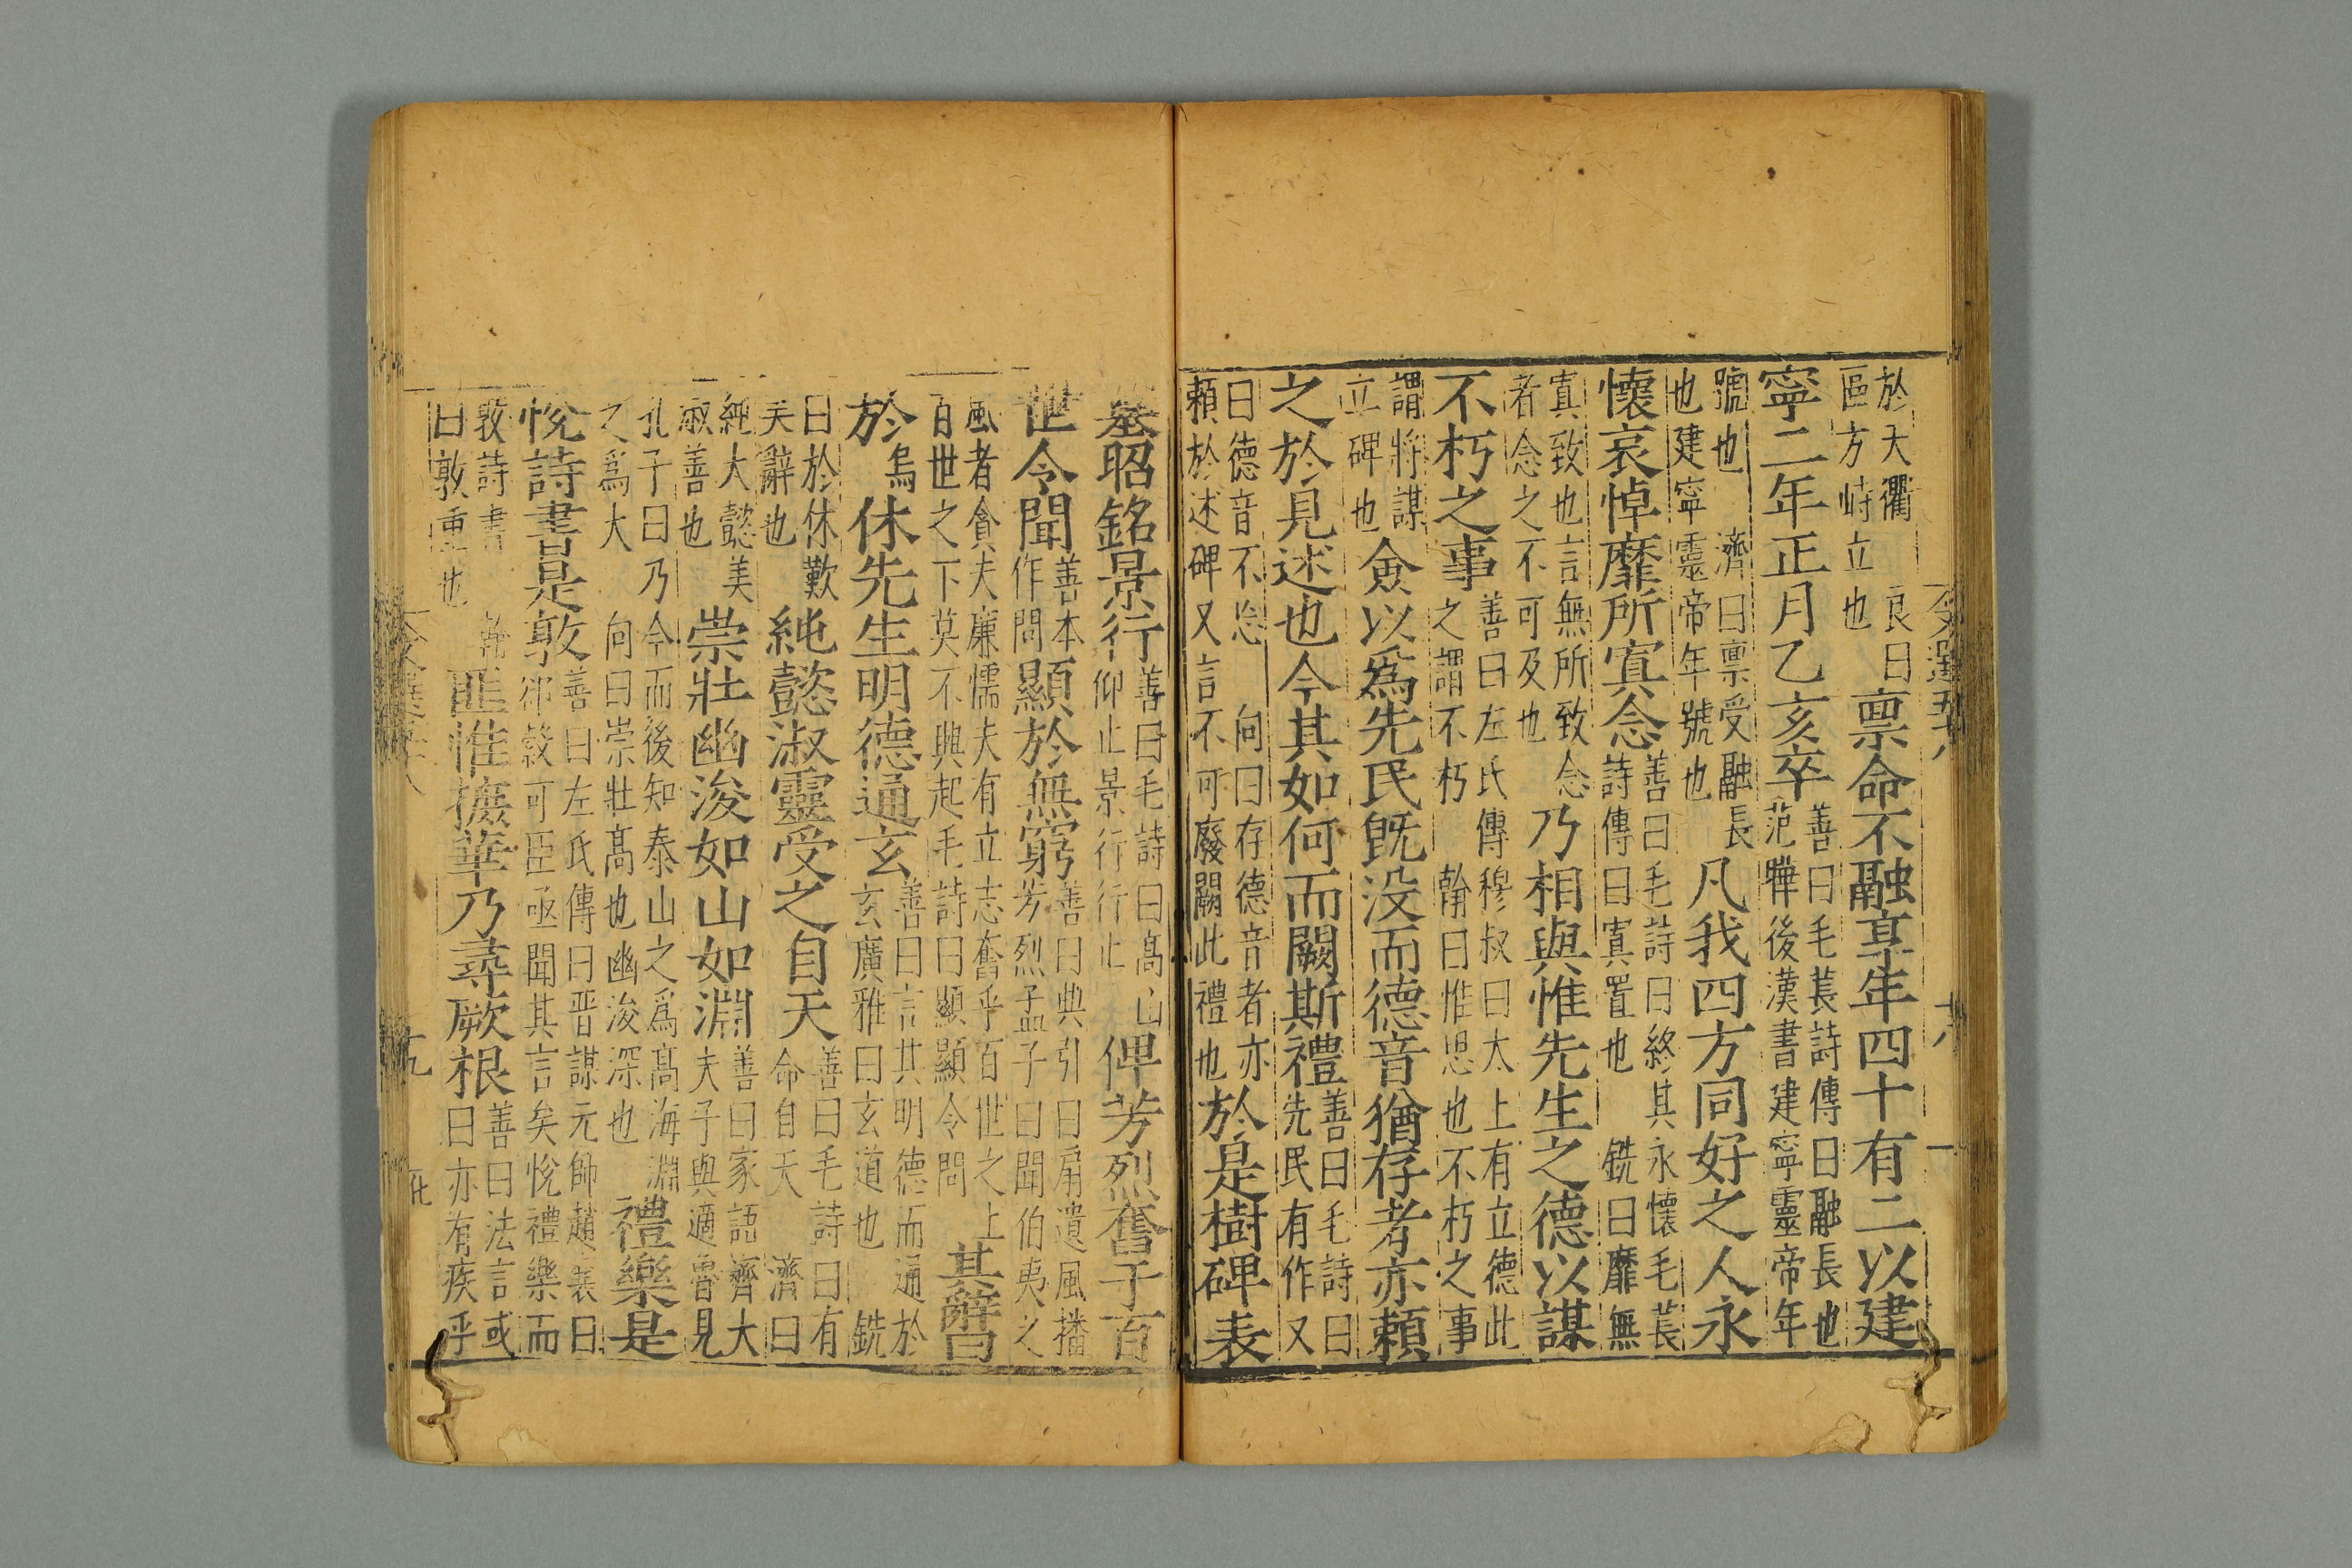 於大衢　良曰
區方峙立也
禀命不融享年四十有二以建
寧二年正月乙亥卒
善曰毛萇詩傳曰融長也
范曄後漢書建寧靈帝年
號也　濟曰禀受融長
也建寧靈帝年號也
凡我四方同好之人永
懷哀悼靡所寘念
善曰毛詩曰終其永懷毛萇
詩傳曰寘置也　銑曰靡無
寘致也言無所致念
者念之不可及也
乃相與惟先生之德以謀
不朽之事
善曰左氏傳穆叔曰太上有立德此
之謂不朽　翰曰惟思也不朽之事
謂將謀
立碑也
僉以爲先民旣沒而德音猶存者亦頼
之於見述也今其如何而闕斯禮
善曰毛詩曰
先民有作又
曰德音不忘　向曰存德音者亦
頼於述碑又言不可廢闕此禮也
於是樹碑表
墓昭銘景行
善曰毛詩曰高山
仰止景行行止
俾芳烈奮于百
世令聞
善本
作問
顯於無窮
善曰典引曰扇遺風播
芳烈孟子曰聞伯夷之
風者貪夫廉懦夫有立志奮乎百世之上
百世之下莫不興起毛詩曰顯顯令問
其辭曰
於
烏
休先生明德通玄
善曰言其明德而通於
玄廣雅曰玄道也　銑
曰於休歎
美辭也
純懿淑靈受之自天
善曰毛詩曰有
命自天　濟曰
純大懿美
淑善也
崇壯幽浚如山如淵
善曰家語齊大
夫子與適魯見
孔子曰乃今而後知泰山之爲高海淵
之爲大　向曰崇壯高也幽浚深也
禮樂是
悅詩書是敦
善曰左氏傳曰晋謀元帥趙衰曰
郤縠可臣亟聞其言矣恱禮樂而
敦詩書　翰
曰敦重也
匪惟摭華乃尋厥根
善曰法言或
曰亦有疾乎
文選五十八
十八
十九